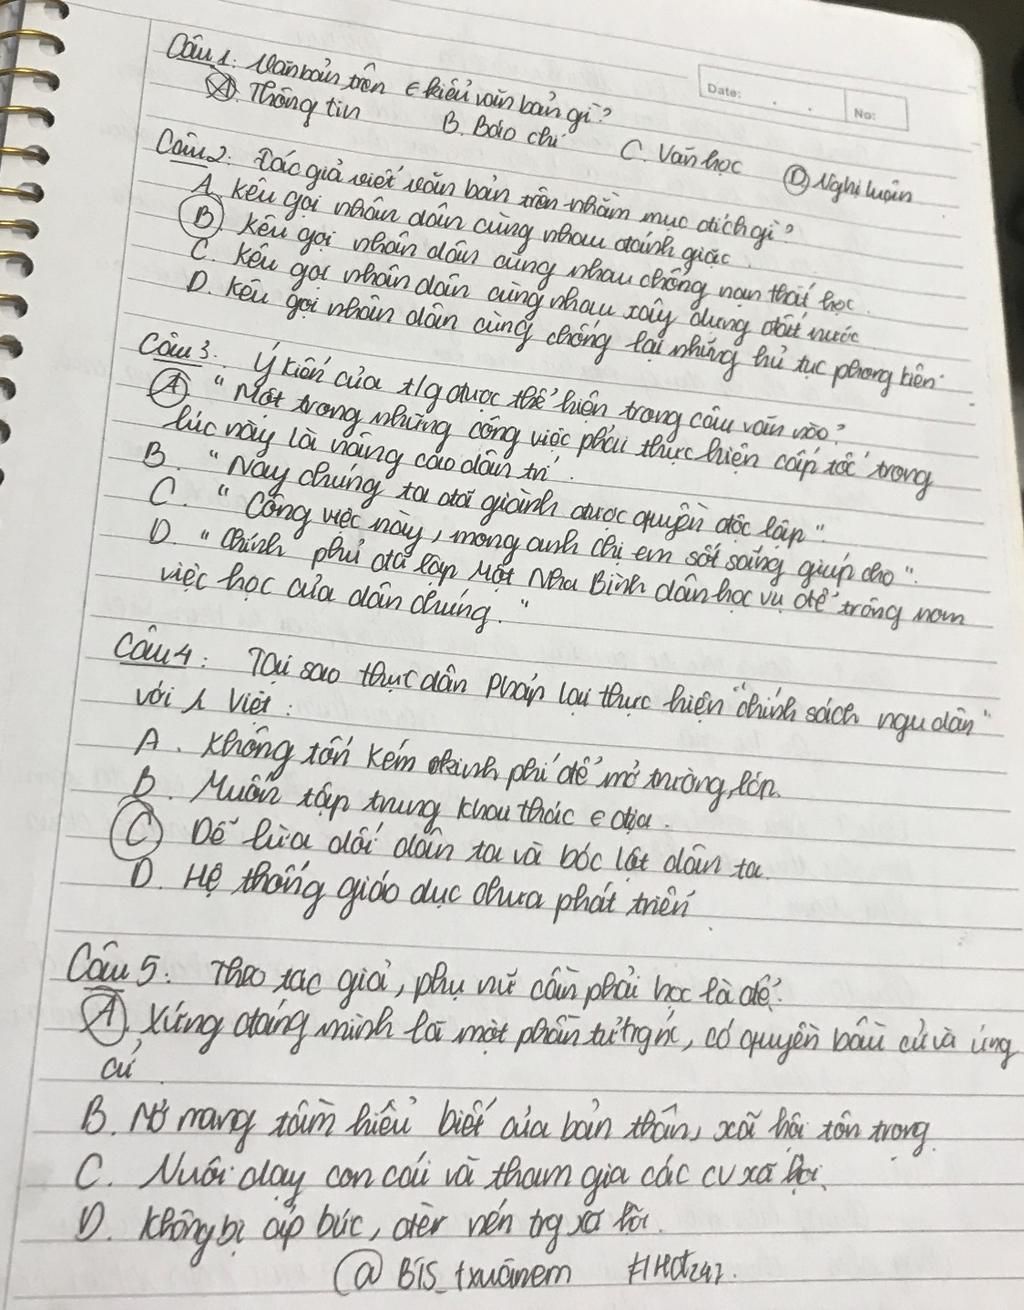 Date: . .
No:
Câu 1: Văn bản trên ∈ kiểu văn bản gì?
A. Thông tin B. Báo chí C. Văn học D. Nghị luận
Câu 2. Tác giả viết văn bản trên nhằm mục đích gì?
A. Kêu gọi nhân dân cùng nhau đánh giặc.
B. Kêu gọi nhân dân cùng nhau chống nạn thất học.
C. Kêu gọi nhân dân cùng nhau xây dựng đất nước
D. Kêu gọi nhân dân cùng chống lại những hủ tục phong kiến.
Câu 3. Ý kiến của t/g được thể hiện trong câu văn nào?
A. "Một trong những công việc phải thực hiện cấp tốc trong
lúc này là nâng cao dân trí.
B. "Nay chúng ta đã giành được quyền độc lập".
C. "Công việc này, mong anh chị em sốt sắng giúp cho".
D. "Chính phủ đã lập Một Nha Bình dân học vụ để trông nom
việc học của dân chúng."
Câu 4: Tại sao thực dân Pháp lại thực hiện "chính sách ngu dân"
với Việt:
A. Không tốn kém kinh phí để mở trường, lớp.
B. Muốn tập trung khai thác ∈ địa.
C. Dễ lừa dối dân ta và bóc lột dân ta.
D. Hệ thống giáo dục chưa phát triển
Câu 5: Theo tác giả, phụ nữ cần phải học là để:
A. Xứng đáng mình là một phần tử trg nc, có quyền bầu cử và ứng
cử
B. Mở mang tầm hiểu biết của bản thân, xã hội tôn trọng.
C. Nuôi dạy con cái và tham gia các cv xã hội.
D. Không bị áp bức, đè nén trg xã hội.
@ BIS_txuânem #Hđ247.